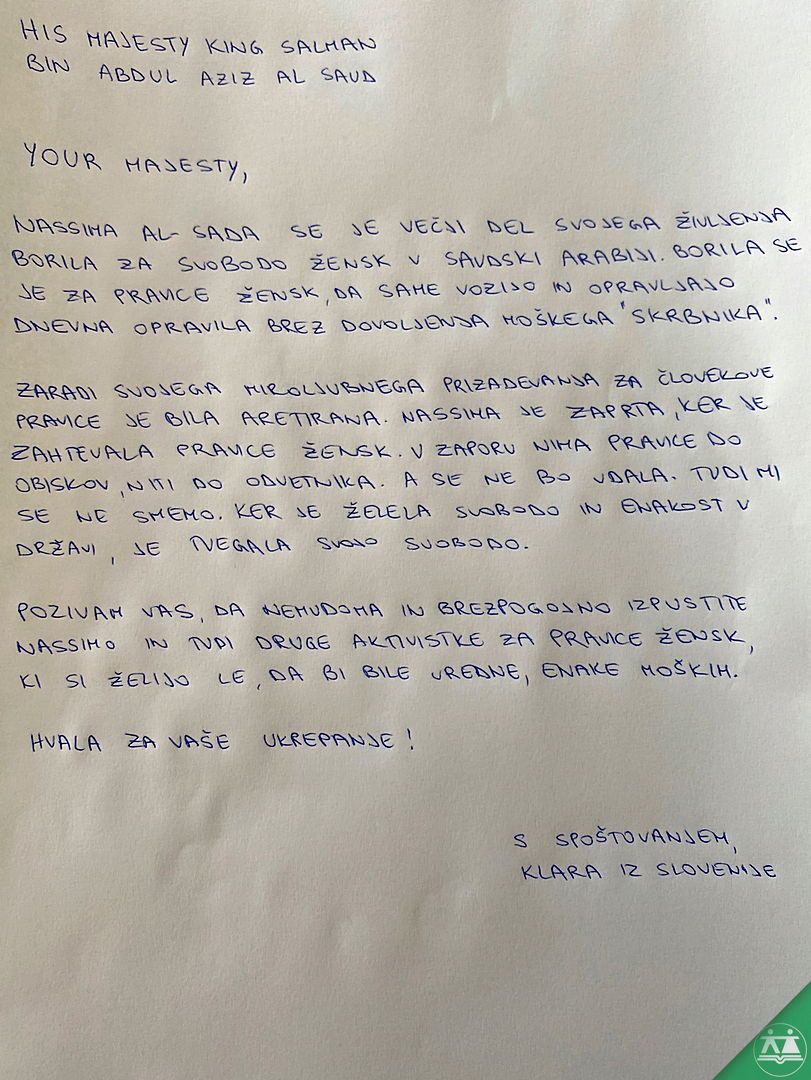 HIS MAJESTY KING SALMAN
BIN ABDUL AZIZ AL SAUD
YOUR MAJESTY,
NASSIMA AL-SADA SE JE VEČJI DEL SVOJEGA ŽIVLJENJA
BORILA ZA SVOBODO ŽENSK V SAVDSKI ARABIJI. BORILA SE
JE ZA PRAVICE ŽENSK, DA SAME VOZIJO IN OPRAVLJAJO
DNEVNA OPRAVILA BREZ DOVOLJENJA MOŠKEGA "SKRBNIKA".
ZARADI SVOJEGA MIROLJUBNEGA PRIZADEVANJA ZA ČLOVEKOVE
PRAVICE JE BILA ARETIRANA. NASSIMA JE ZAPRTA, KER JE
ZAHTEVALA PRAVICE ŽENSK. V ZAPORU NIMA PRAVICE DO
OBISKOV, NITI DO ODVETNIKA. A SE NE BO VDALA. TUDI MI
SE NE SMEMO. KER JE ŽELELA SVOBODO IN ENAKOST V
DRŽAVI, JE TVEGALA SVOJO SVOBODO.
POZIVAM VAS, DA NEMUDOMA IN BREZPOGOJNO IZPUSTITE
NASSIMO IN TUDI DRUGE AKTIVISTKE ZA PRAVICE ŽENSK,
KI SI ŽELIJO LE, DA BI BILE VREDNE, ENAKE MOŠKIM.
HVALA ZA VAŠE UKREPANJE!
S SPOŠTOVANJEM,
KLARA IZ SLOVENIJE